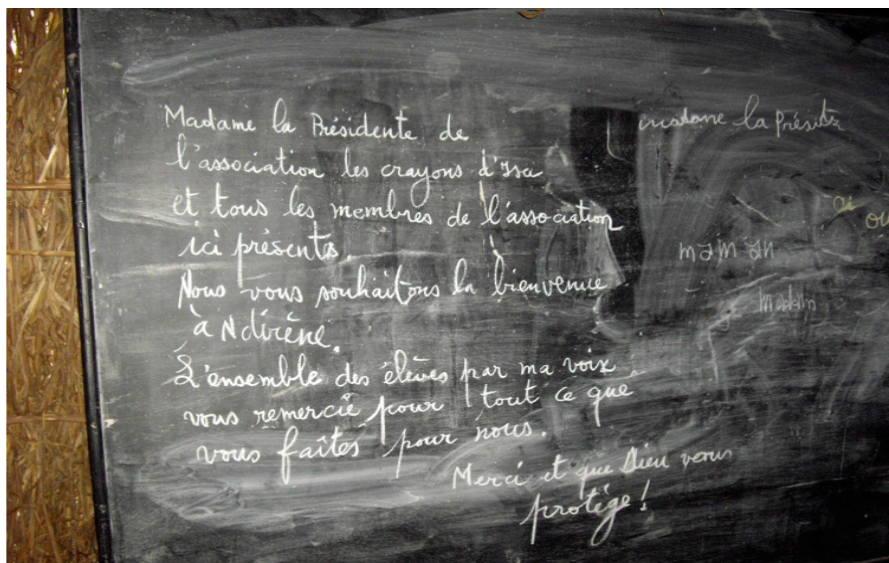 Madame la Présidente de
l'association les crayons d'Isa
et tous les membres de l'association
ici présents.
Nous vous souhaitons la bienvenue
à Ndirène.
L'ensemble des élèves par ma voix
vous remercie pour tout ce que
vous faîtes pour nous.
Merci et que Dieu vous
protège !
la Présidte
maman
ou